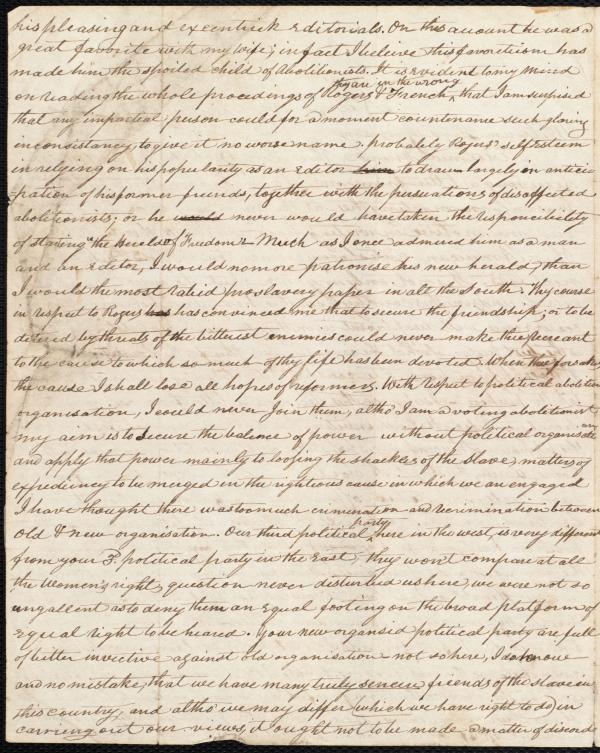 his pleasing and excentrick editorials. On this account he was a
great favorite with my wife; in fact I beleive this favoriteism has
made him the spoiled child of Abolitionists. It is evident to my mind
on reading the whole procedings of Rogers & French, they are in the wrong that I am surprised
that any impartial person could for a moment countenance such glaring
inconsistancy, to give it no worse name. probably Rogers' self esteem
in relying on his popularity as an editor him to draw largely on antici
pation of his former friends, together with the persuations of disaffected
abolitionists; or he would never would have taken the responcibility
of starting "the Herald of Freedom". Much as I once admired him as a man
and an editor, I would no more patronise his new herald, than
I would the most rabid proslavery paper in all the South. Thy course
in respect to Rogers has has convinced me that to secure the friendship, or to be
detered by threats of the bitterest enemies could never make thee recreant
to the cause to which so much of thy life has been devoted. When thee forsakes
the cause I shall lose all hopes of reformers. With respect to political abolition
organisation, I could never Join them, altho I am a voting abolitionist,
my aim is to secure the balance of power without political organisation
and apply that power mainly to loosing the shackles of the slave, matters of
expediency to be merged in the righteous cause in which we are engaged
I have thought there was too much crimination and recrimination between
old & new organisation. Our third political party here in the west, is very different
from your 3. political party in the East, they won't compare at all
the Women's right, question never disturbed us here, we were not so
ungallent as to deny them an equal footing on the broad platform of
equal right to be heared. Your new organised political party are full
of bitter invective against old organisation not so here, I do know
and no mistake, that we have many truly sencere friends of the slave in
this country, and altho we may differ (which we have right to do) in
carrying out our views, it ought not to be made a matter of discord